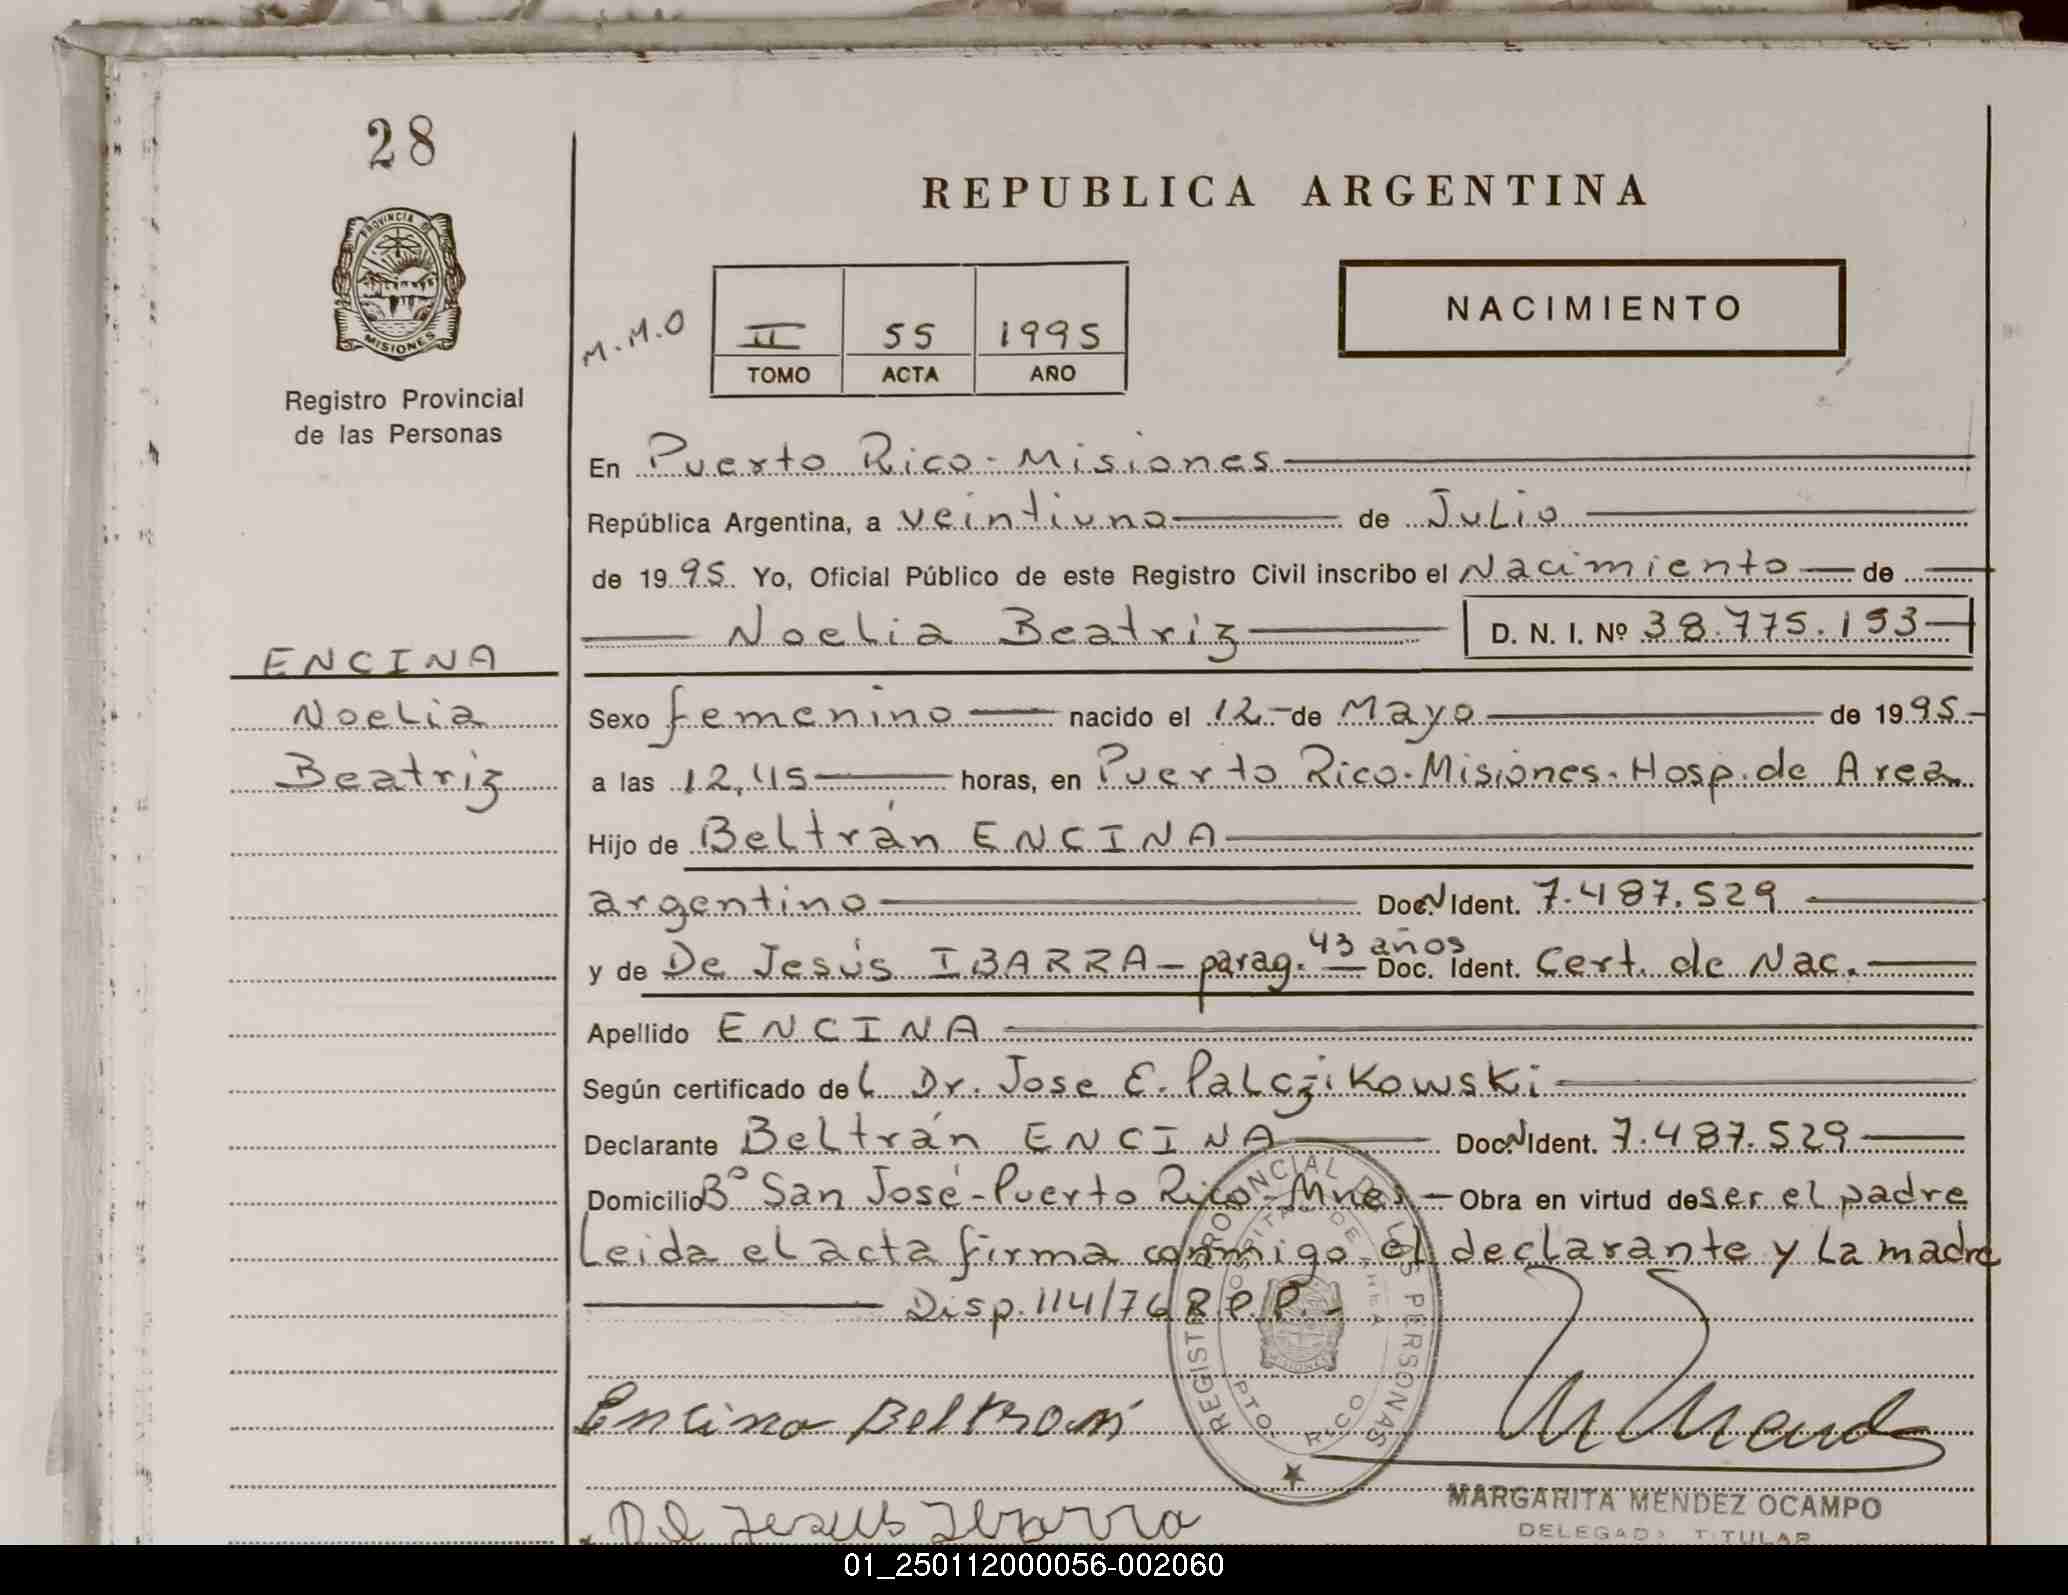 28
REPUBLICA ARGENTINA
PROVINCIA DE
MISIONES
Registro Provincial
de las Personas
M.M.O
II 55 1995
TOMO ACTA AÑO
NACIMIENTO
En Puerto Rico - Misiones
República Argentina, a veintiuno de Julio
de 1995. Yo, Oficial Público de este Registro Civil inscribo el Nacimiento de
Noelia Beatriz D. N. I. Nº 38.775.193
ENCINA
Noelia
Beatriz
Sexo femenino nacido el 12 de Mayo de 1995
a las 12,45 horas, en Puerto Rico. Misiones. Hosp. de Area
Hijo de Beltrán ENCINA
argentino Doc. N Ident. 7.487.529
y de De Jesús IBARRA - parag. 43 años Doc. Ident. Cert. de Nac.
Apellido ENCINA
Según certificado del Dr. Jose E. Palczikowski
Declarante Beltrán ENCINA Doc. N Ident. 7.487.529
Domicilio Bº San José - Puerto Rico - Mnes - Obra en virtud de ser el padre
Leida el acta firma conmigo el declarante y la madre
Disp. 114/76 R.P.P. -
REGISTRO PROVINCIAL DE LAS PERSONAS
HOSPITAL DE AREA
PTO. RICO
Encina Beltran
De Jesus Ibarra
MARGARITA MENDEZ OCAMPO
DELEGADA TITULAR
01_250112000056-002060